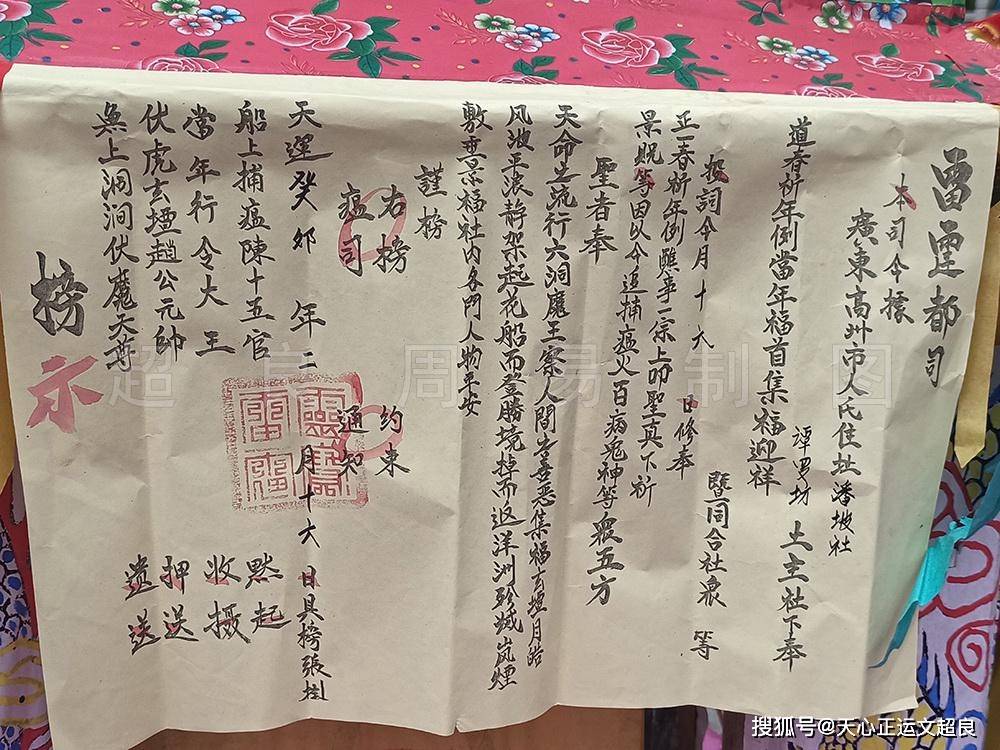 雷霆都司
本司今據
廣東高州市人氏住址潘坡社
譚罗坊 土主社下奉
道春祈年例當年福首集福迎祥
暨同合社衆 等
投詞今月十六 日修奉
正一春祈年例醮事一宗上叩聖真下祈
景貺等因以今追捕瘟火百病鬼神等衆五方
聖者奉
天命之流行六洞魔王察人間者善惡集福玄壇月皓
风波平浪静架起花船而登勝境掉而返洋洲殄滅岚煙
敷 景福社内各門人物平安
謹榜
右榜 約束
瘟司 通知
天運癸卯 年二 月十六 日具榜張掛
船上捕瘟陳十五官
當年行令大王
伏虎玄壇趙公元帥
無上洞渊伏魔天尊
起
收摄
押送
遣送
榜示
超良 周易制图
搜狐号@天心正运文超良